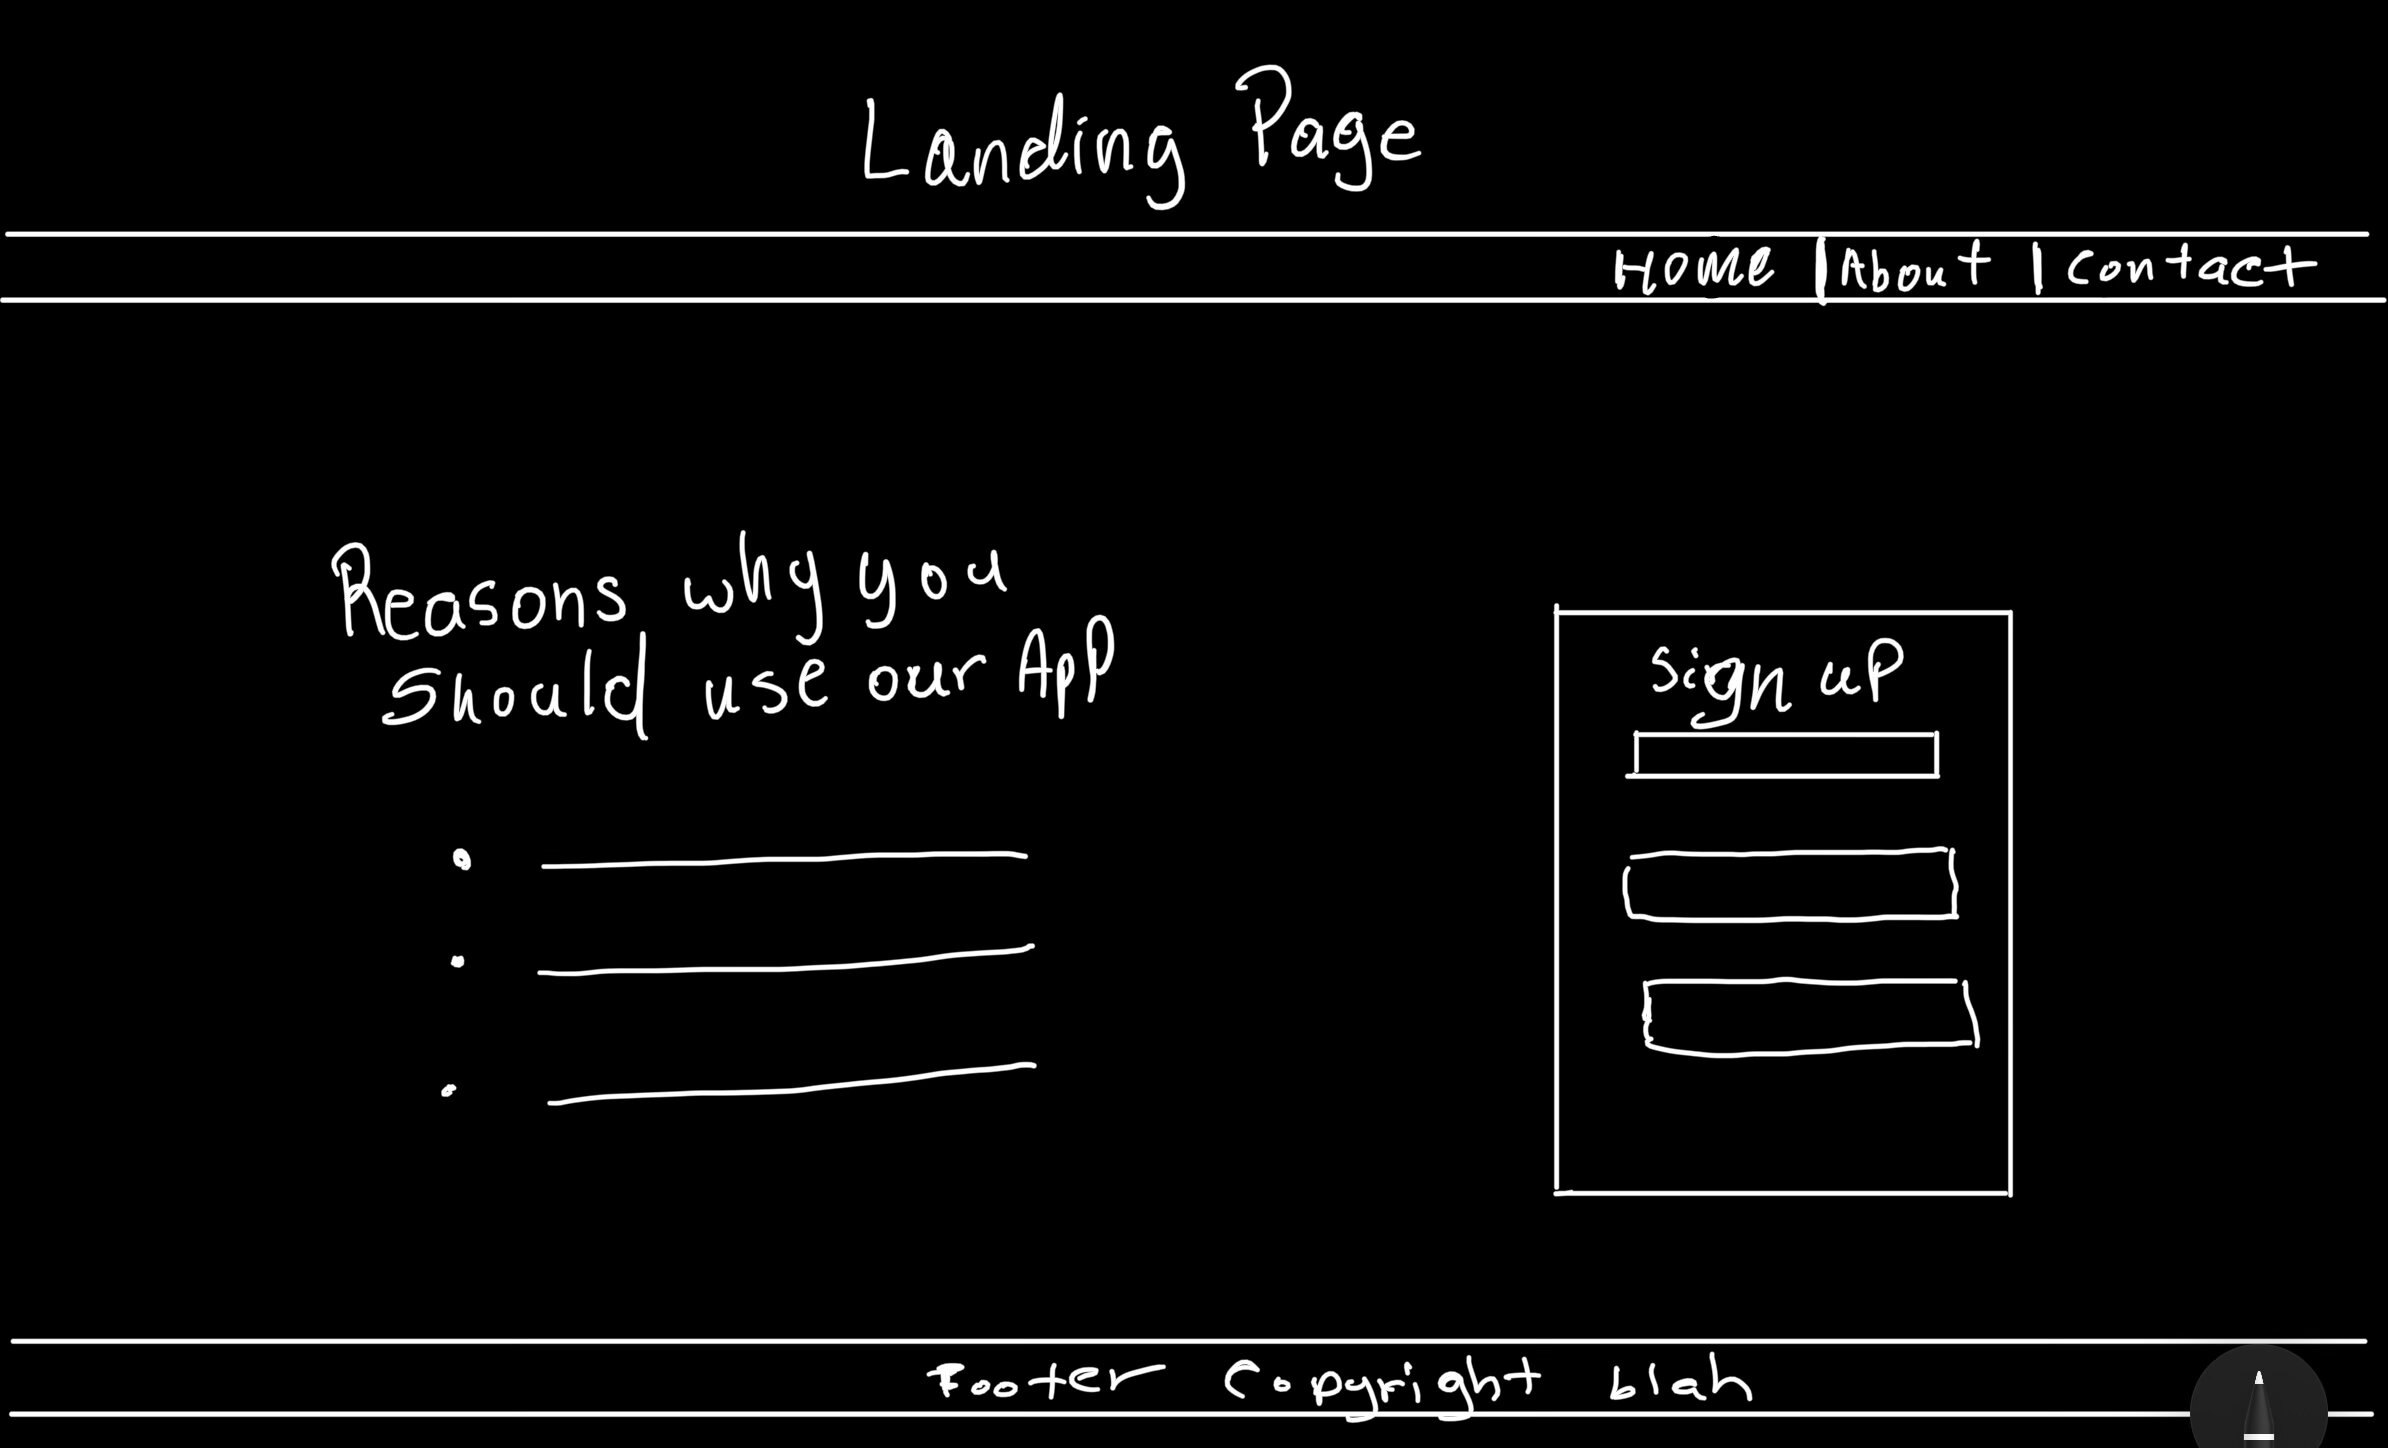 Landing Page
HOME | About | Contact
Reasons why you
should use our App
Sign up
Footer Copyright blah